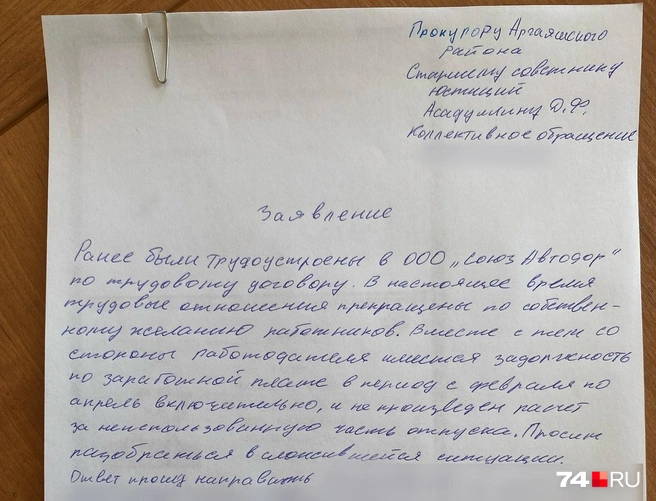 Прокурору Аргаяшского
района
Старшему советнику
юстиций
Асадуллину Д.Ф.
Коллективное обращение
Заявление
Ранее были трудоустроены в ООО „Союз Автодор"
по трудовому договору. В настоящее время
трудовые отношения прекращены по собствен-
ному желанию работников. Вместе с тем со
стороны работодателя имеется задолженность
по заработной плате в период с февраля по
апрель включительно, и не произведен расчет
за неиспользованную часть отпуска. Просим
разобраться в сложившейся ситуации.
Ответ прошу направить
74.RU